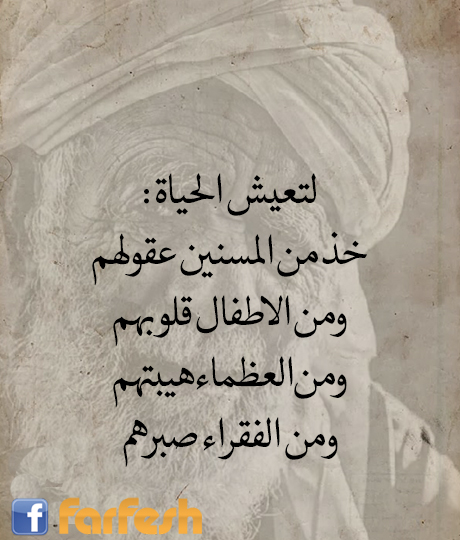 لتعيش الحياة :
خذ من المسنين عقولهم
ومن الاطفال قلوبهم
ومن العظماء هيبتهم
ومن الفقراء صبرهم
f farfesh